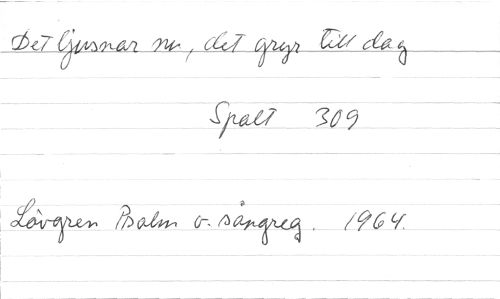 Det ljusnar nu, det gryr till dag
Spalt 309
Lövgren Psalm o. sångreg. 1964.